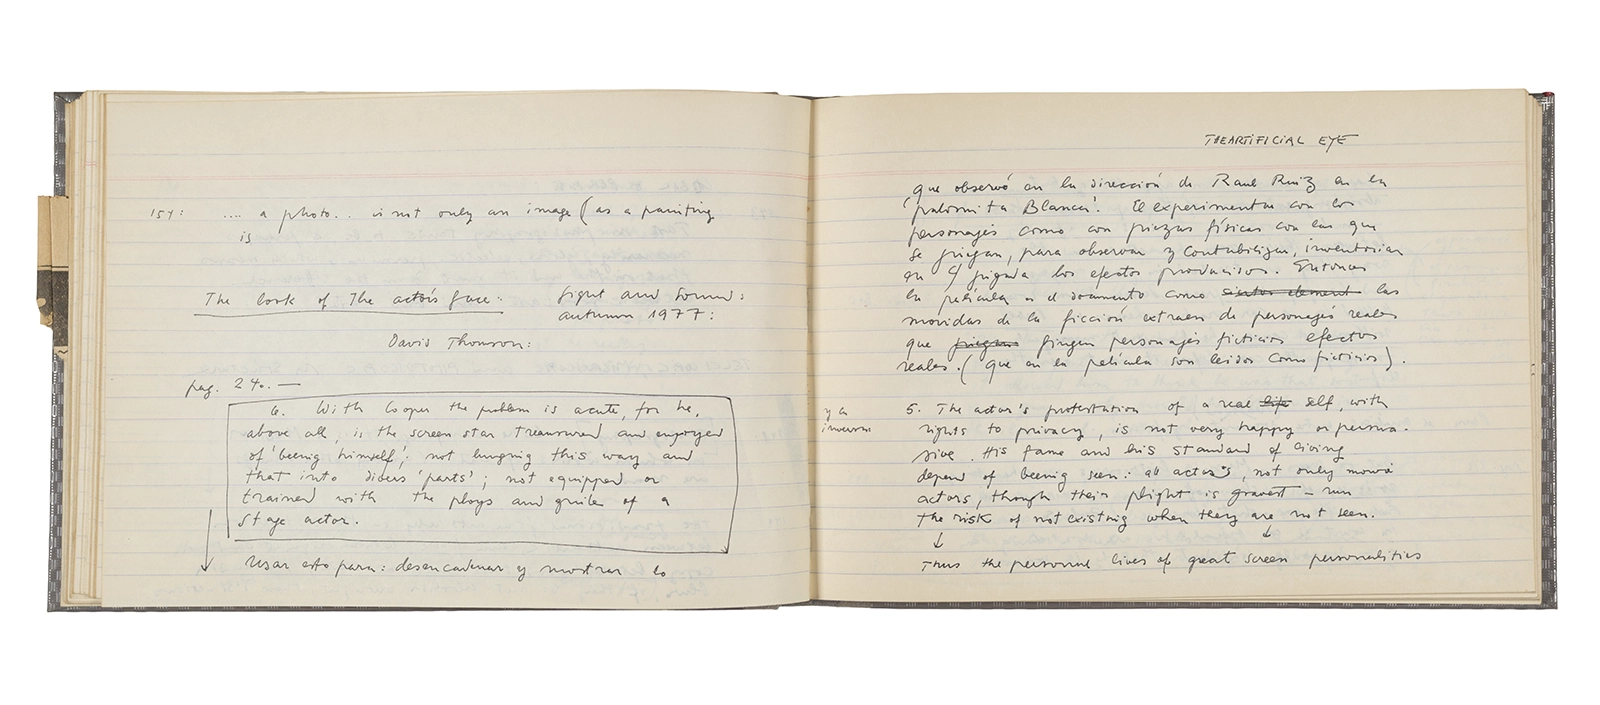 154: .... a photo.. is not only an image (as a painting
is
The look of The actor's face: Sight and Sound:
autumn 1977:
David Thomson:
pag. 240. —
6. With Cooper the problem is acute, for he,
above all, is the screen star treasured and enjoyed
of 'beeing himself'; not lunging this way and
that into divers 'parts'; not equipped or
trained with the ploys and guile of a
stage actor.
Usar esto para: desencadenar y mostrar lo
THE ARTIFICIAL EYE
que observó en la dirección de Raul Ruiz en la
'palomita Blanca'. El experimentar con los
personajes como con piezas físicas con las que
se juegan, para observar y contabilizar, inventariar
en c/ jugada los efectos producidos. Entonces
la película es el documento como ciertos element las
movidas de la ficción extraen de personajes reales
que juegan fingen personajes ficticios efectos
reales. (que en la película son leidos como ficticios).
y a
inversa
5. The actor's protestation of a real life self, with
rights to privacy, is not very happy or persua-
sive. His fame and his standard of living
depend of beeing seen: all actors, not only movie
actors, though their plight is gravest – run
the risk of not existing when they are not seen.
Thus the personal lives of great screen personalities